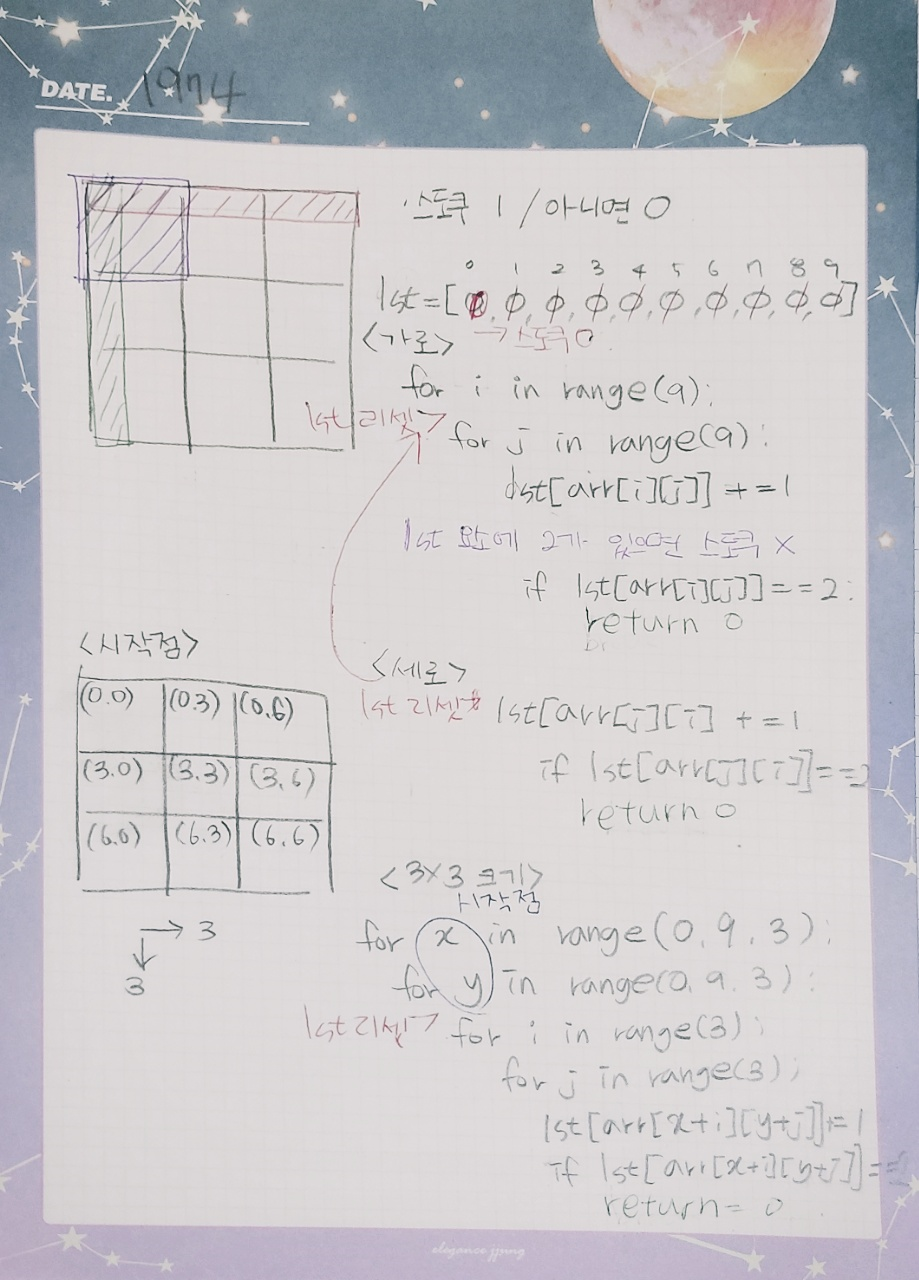 DATE. 1974
스도쿠 1 / 아니면 0
0 1 2 3 4 5 6 7 8 9
lst=[0, 0, 0, 0, 0, 0, 0, 0, 0, 0]
→스도쿠 0
<가로>
for i in range(9):
lst 리셋>
for j in range(9):
lst[arr[i][j]] += 1
lst 요소에 2가 있으면 스도쿠 X
if lst[arr[i][j]] == 2:
return 0
<세로>
lst 리셋
lst[arr[j][i] += 1
if lst[arr[j][i]]==2
return 0
<시작점>
(0.0) (0.3) (0.6)
(3.0) (3.3) (3.6)
(6.0) (6.3) (6.6)
→ 3
↓
3
<3X3 크기>
시작점
for x in range(0, 9, 3):
for y in range(0. 9. 3):
lst 리셋>
for i in range(3):
for j in range(3);
lst[arr[x+i][y+j]]+=1
if lst[arr[x+i][y+j]]==
return= 0
elegance